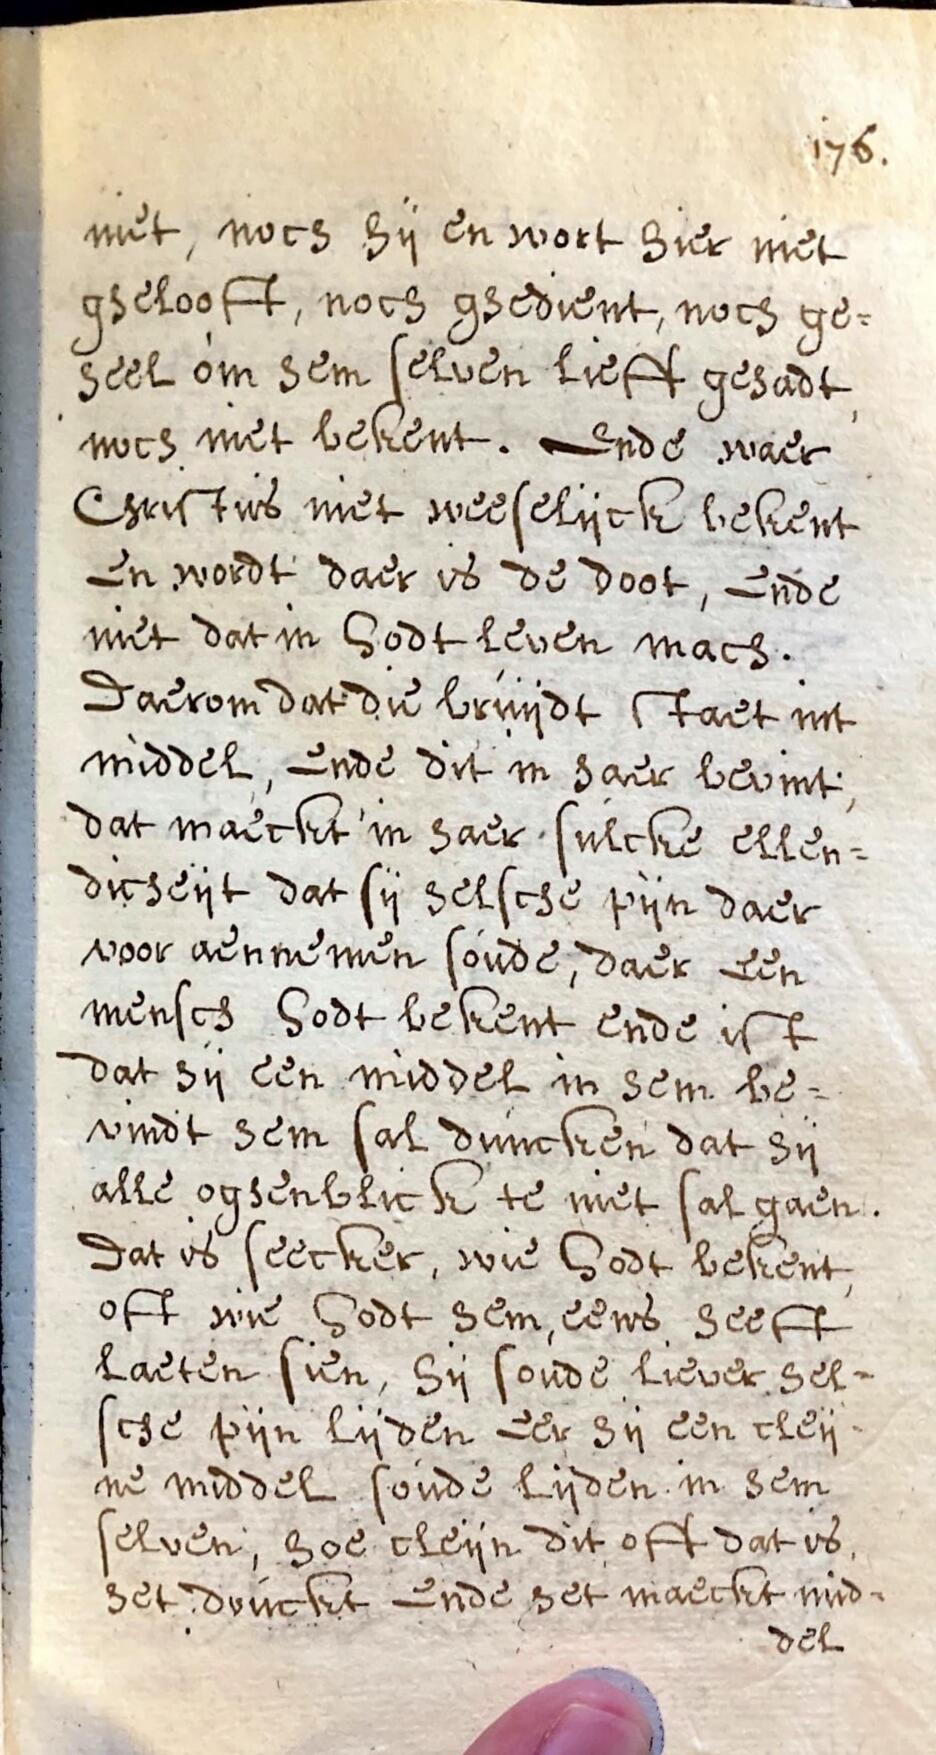 176.
niet, noch hij en wort hier niet
ghelooft, noch ghedient, noch ge=
heel om hem selven lieft gehadt,
noch niet bekent. Ende waer
Christus niet weeselijck bekent
en wordt daer is de doot, ende
niet dat in Godt leven mach.
Daerom dat die bruijdt staet int
middel, ende dit in haer bevint,
dat maeckt in haer sulcke ellen=
dicheijt dat sij helsche pijn daer
voor aennemen soude, daer een
mensch Godt bekent ende ist
dat hij een middel in hem be=
vindt hem sal duncken dat hij
alle oghenblick te niet sal gaen.
Dat is seecker, wie Godt bekent,
oft wie Godt hem eens heeft
laeten sien, hij soude liever hel=
sche pijn lijden eer hij een cleij=
ne middel soude lijden in hem
selven, hoe cleijn dit oft dat is,
het druckt ende het maeckt mid=
del